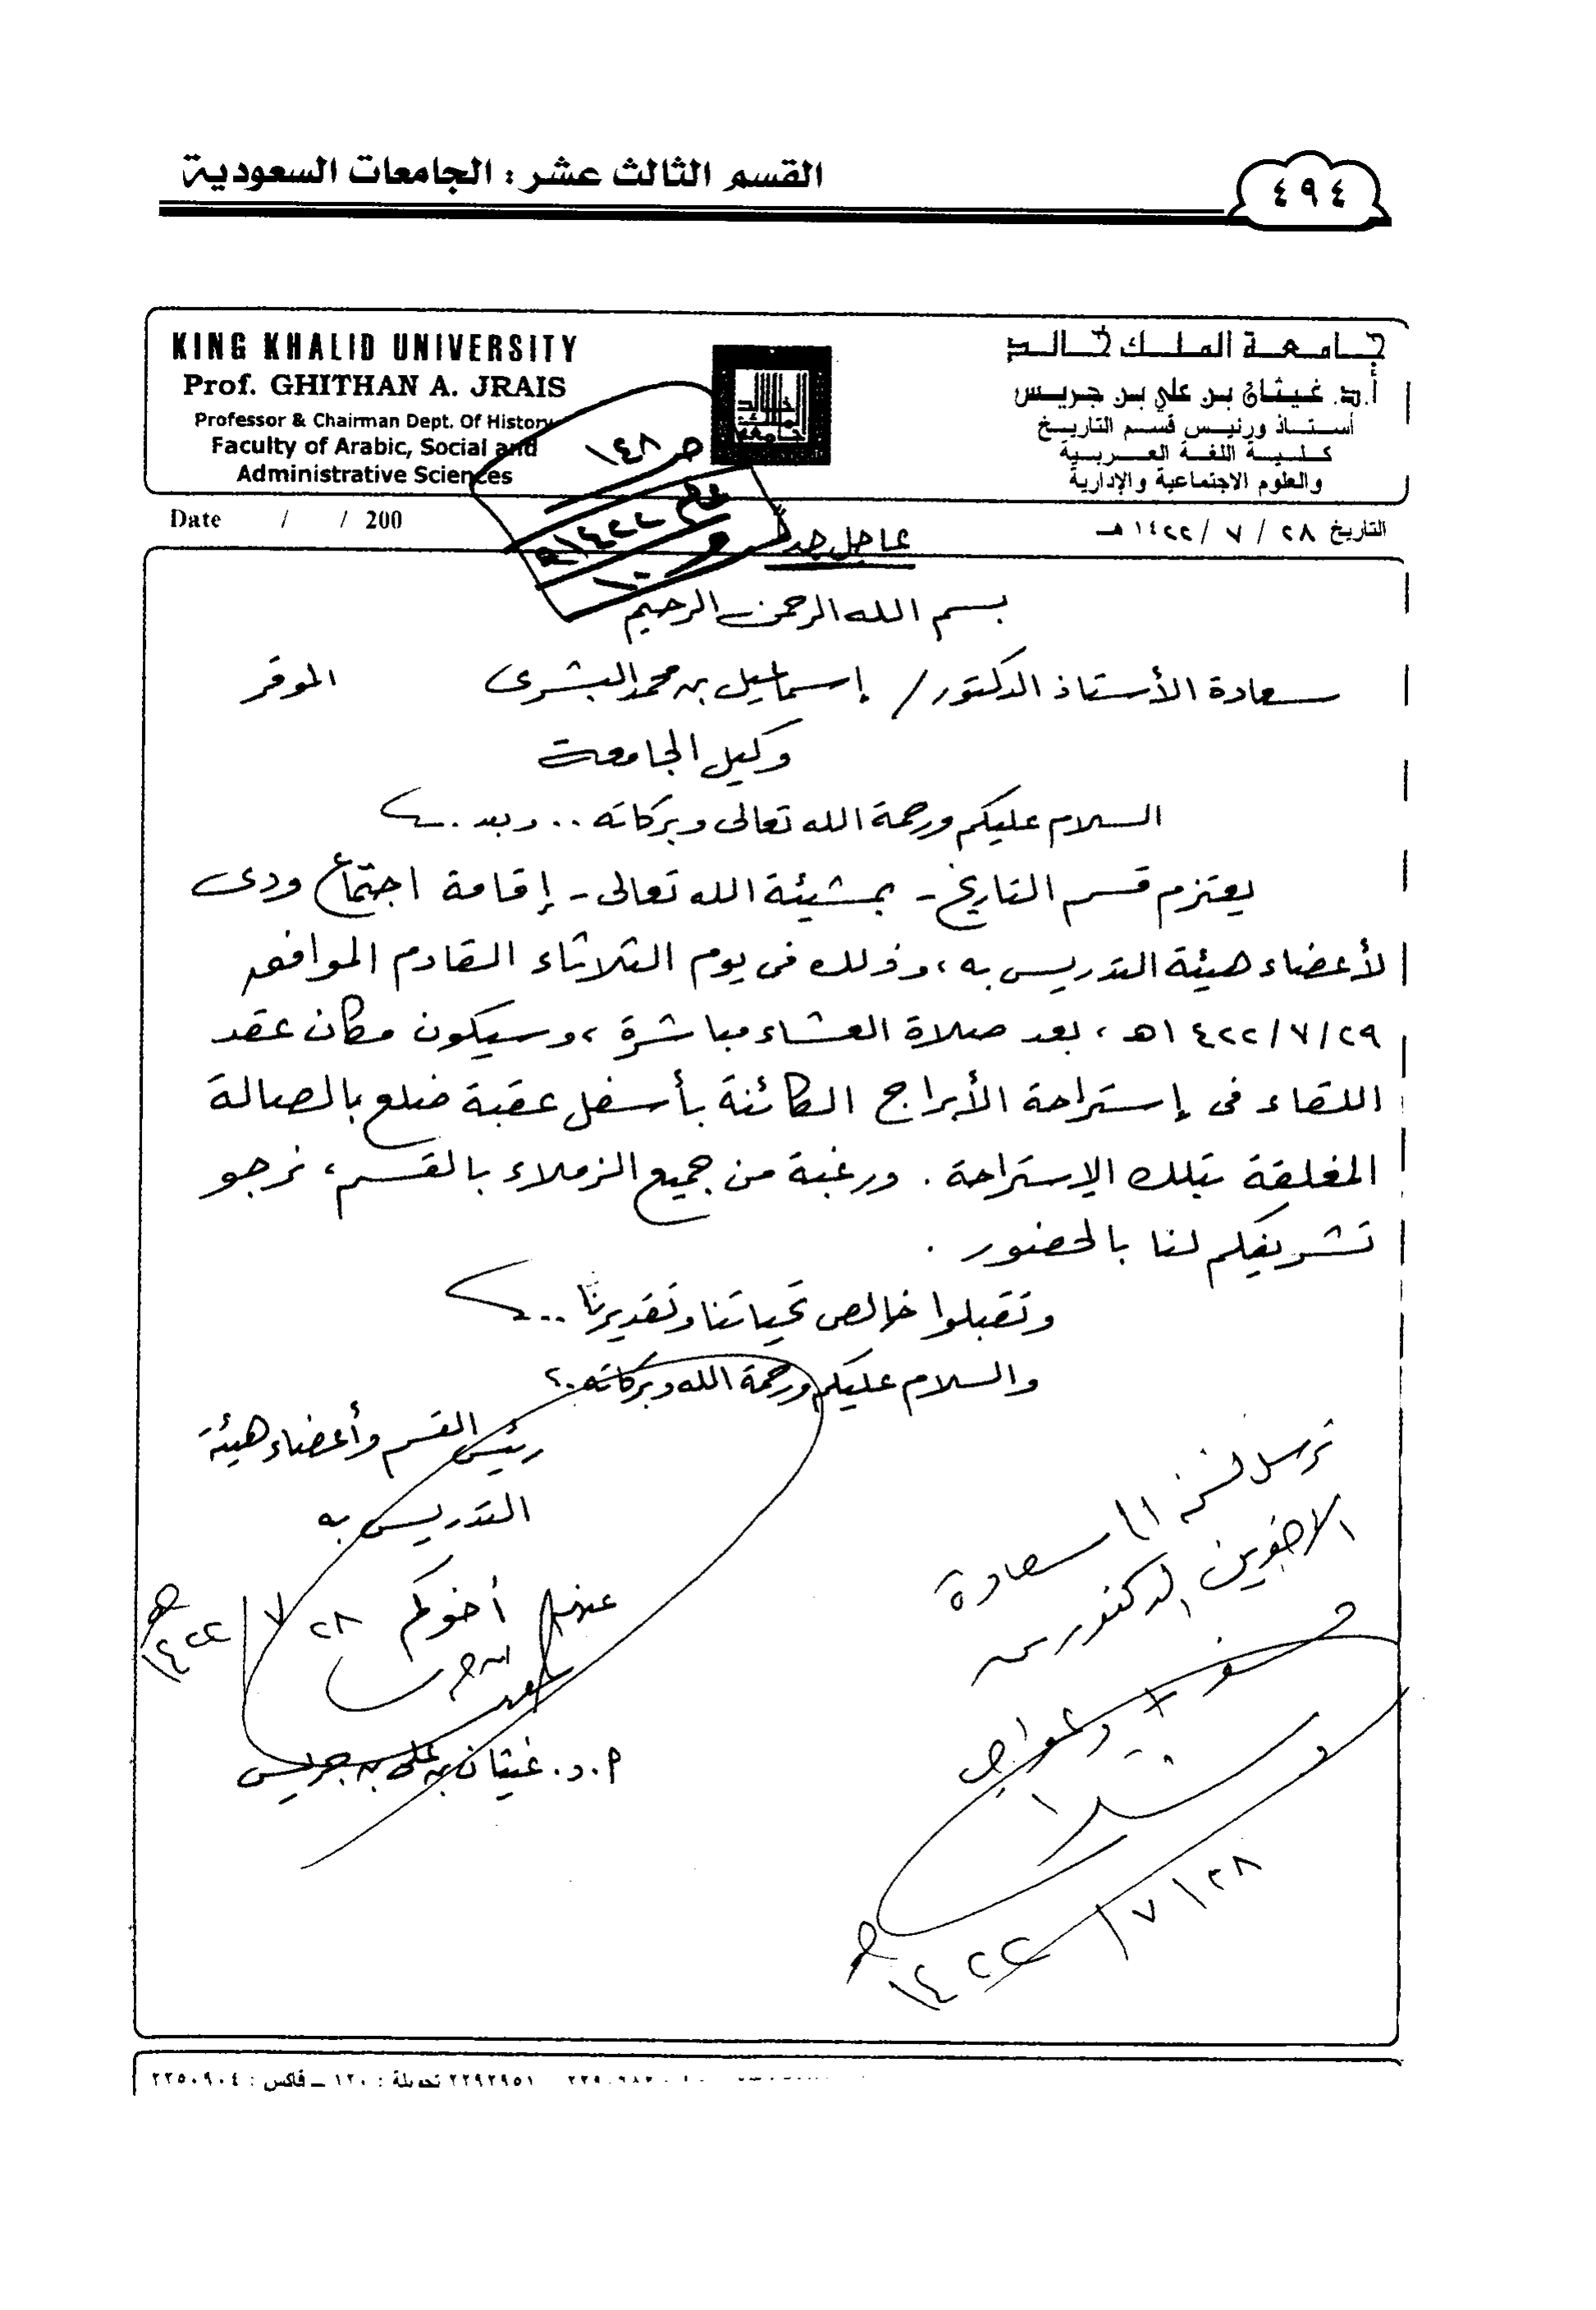 القسم الثالث عشر : الجامعات السعودية
٤٩٤
KING KHALID UNIVERSITY
Prof. GHITHAN A. JRAIS
Professor & Chairman Dept. Of History
Faculty of Arabic, Social and
Administrative Sciences
جامعة الملك خالد
أ.د. غيثان بن علي بن جريس
أستاذ ورئيس قسم التاريخ
كلية اللغة العربية
والعلوم الاجتماعية والإدارية
Date / / 200
التاريخ ٢٨ / ٧ / ١٤٢٢ هـ
ص ١٤٨
١٤٢٢
عاجل جداً
بسم الله الرحمن الرحيم
سعادة الأستاذ الدكتور / إسماعيل بن محمد البشرى الموقر
وكيل الجامعة
السلام عليكم ورحمة الله تعالى وبركاته .. وبعد ..
يعتزم قسم التاريخ - بمشيئة الله تعالى - إقامة اجتماع ودى
لأعضاء هيئة التدريس به ، وذلك فى يوم الثلاثاء القادم الموافق
٢٩ / ٧ / ١٤٢٢هـ ، بعد صلاة العشاء مباشرة ، وسيكون مكان عقد
اللقاء فى إستراحة الأبراج الكائنة بأسفل عقبة ضلع بالصالة
المغلقة بتلك الإستراحة . ورغبة من جميع الزملاء بالقسم ، نرجو
تشريفكم لنا بالحضور .
وتقبلوا خالص تحياتنا وتقديرنا ...
والسلام عليكم ورحمة الله وبركاته ..
رئيس القسم وأعضاء هيئة
التدريس به
أخوكم
٢٨ / ٧ / ١٤٢٢ هـ
أ.د. غيثان بن على بن جريس
ترسل نسخ إلى سعادة
الأخوين الدكتورين
٢٨ / ٧ / ١٤٢٢ هـ
٢٢٩٢٩٥١ تحويلة : ١٢٠ ـ فاكس : ٢٢٥٠٩٠٤